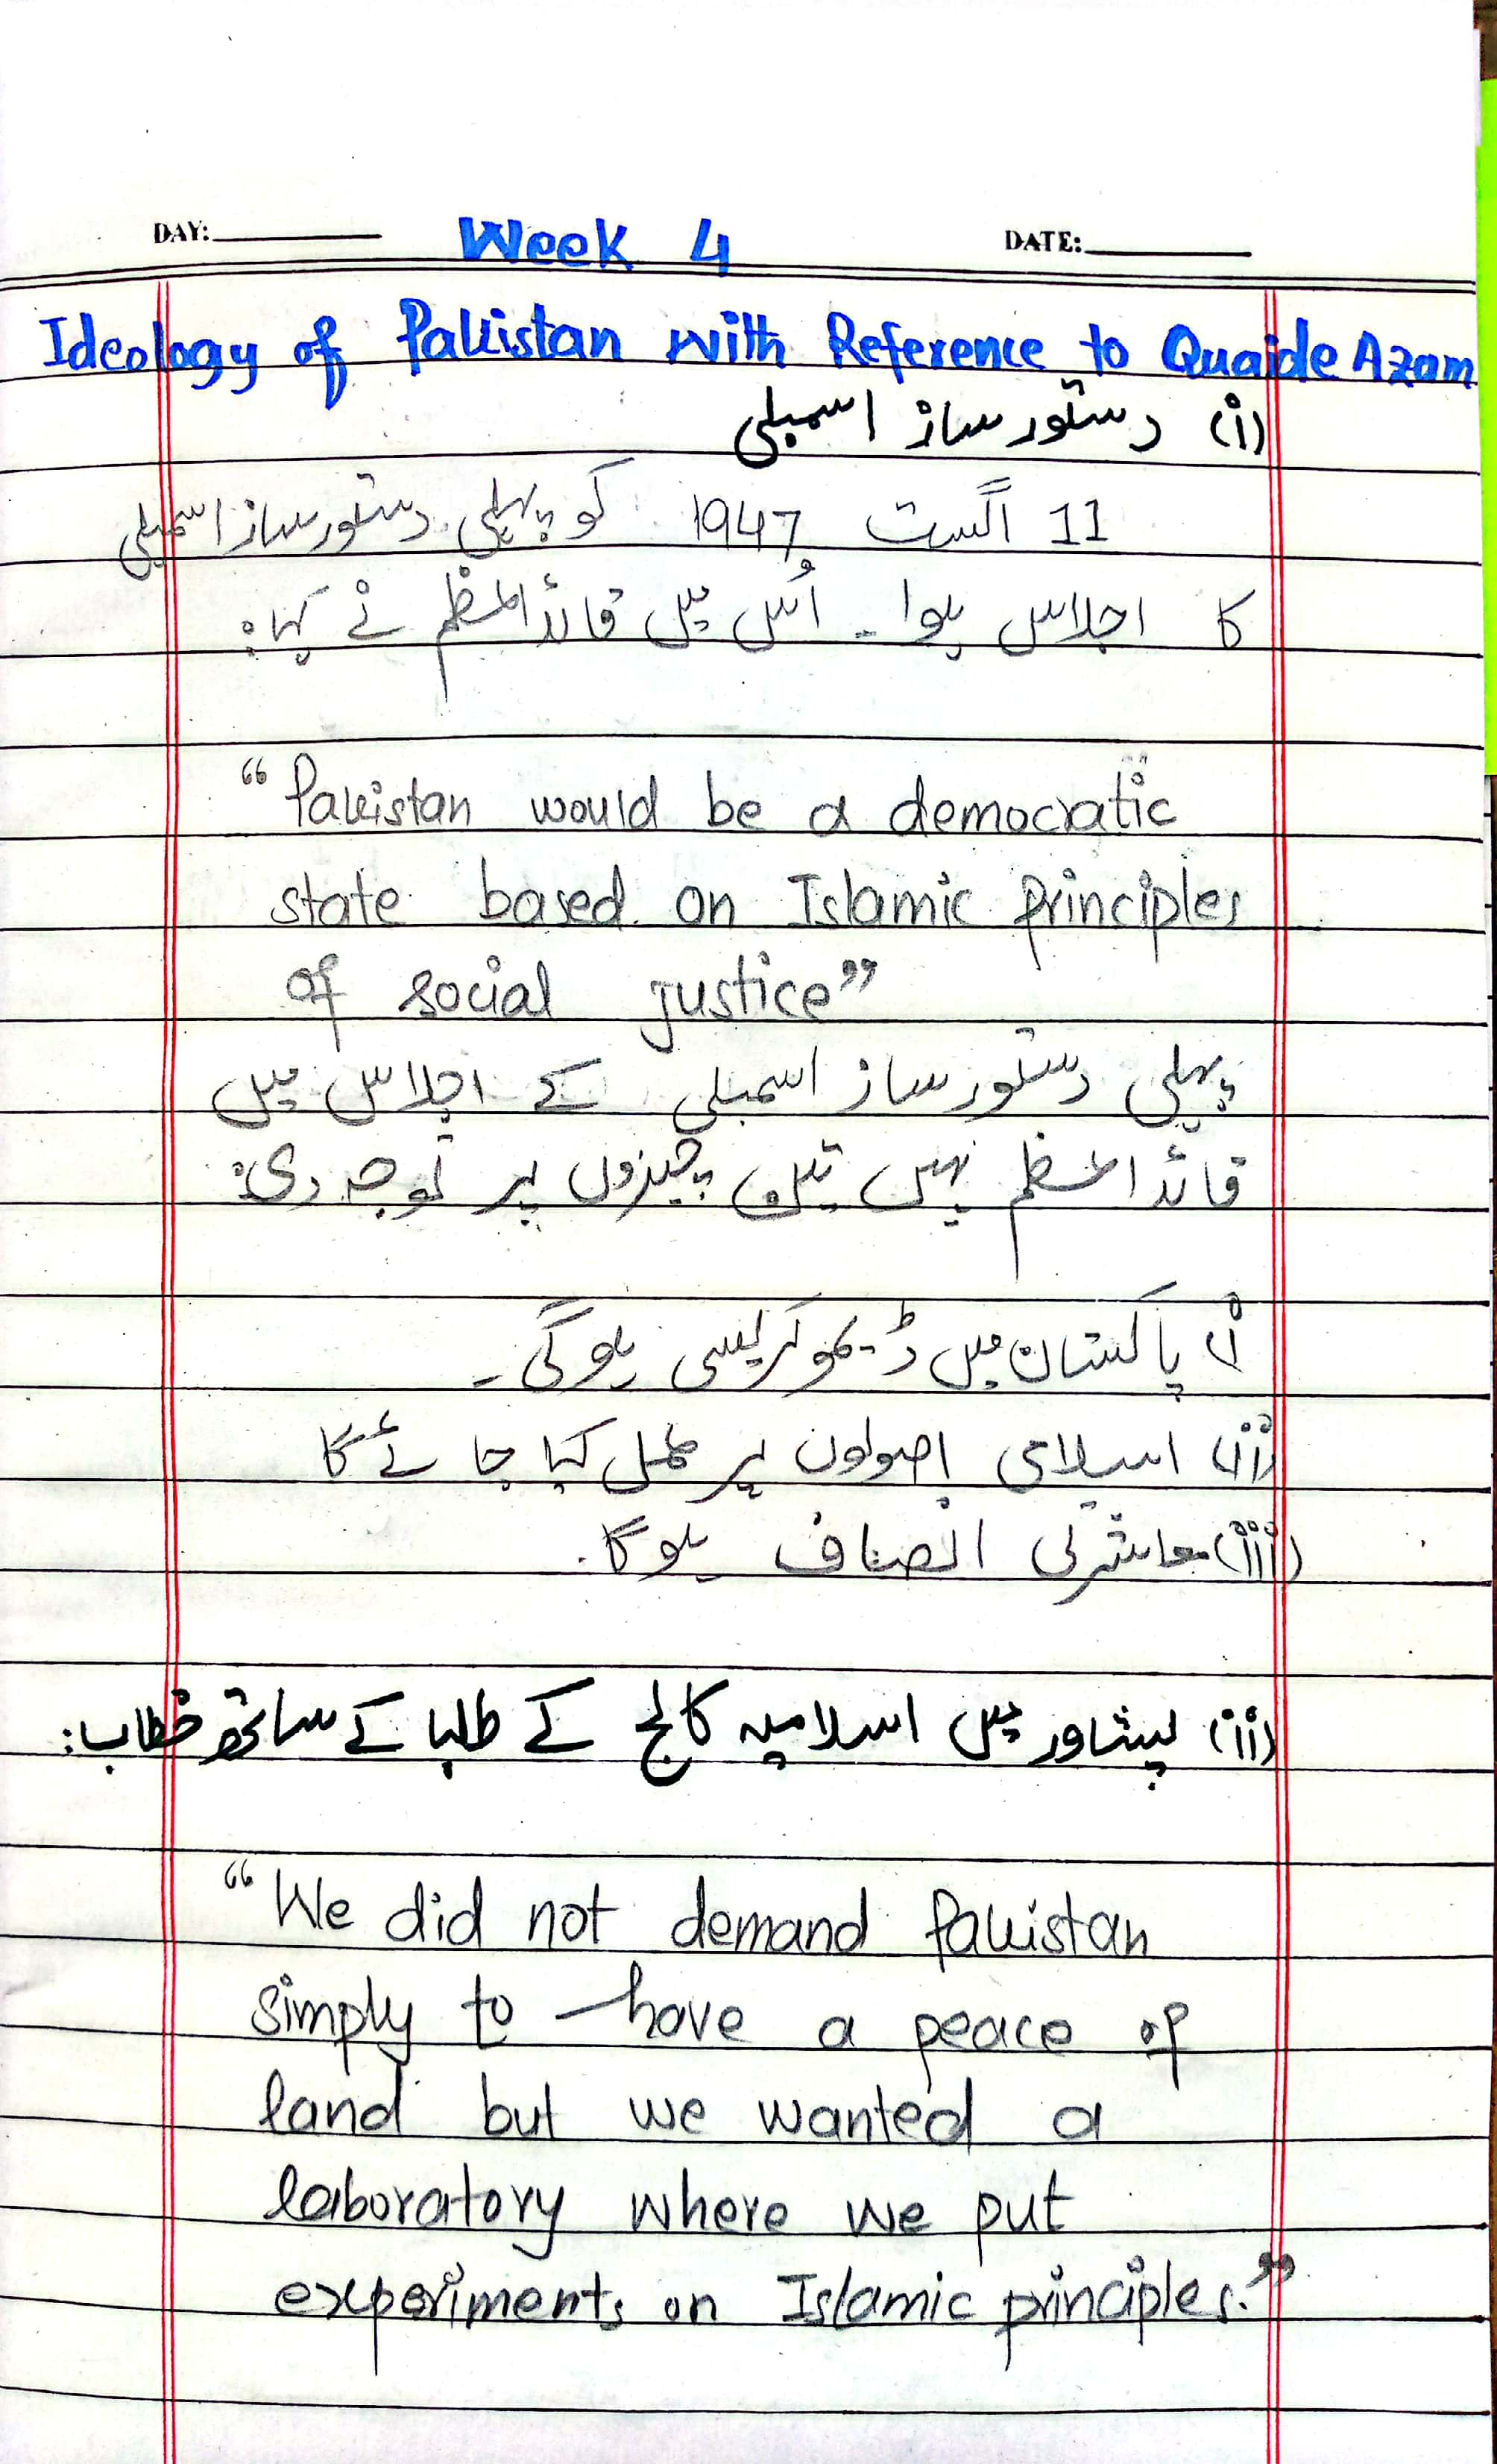 DAY: Week 4 DATE:
Ideology of Pakistan with Reference to Quaide Azam
(i) دستور ساز اسمبلی
11 اگست 1947 کو پہلی دستور ساز اسمبلی
کا اجلاس ہوا۔ اُس میں قائداعظم نے کہا:
“Pakistan would be a democratic
state based on Islamic principles
of social justice”
پہلی دستور ساز اسمبلی کے اجلاس میں
قائداعظم نہیں تین چیزوں پر توجہ دی:
i) پاکستان میں ڈیموکریسی ہوگی۔
ii) اسلامی اصولوں پر عمل کیا جائے گا
(iii) معاشرتی انصاف ہوگا.
(ii) پشاور میں اسلامیہ کالج کے طلبا کے ساتھ خطاب:
“We did not demand Pakistan
simply to have a peace of
land but we wanted a
laboratory where we put
experiments on Islamic principles.”